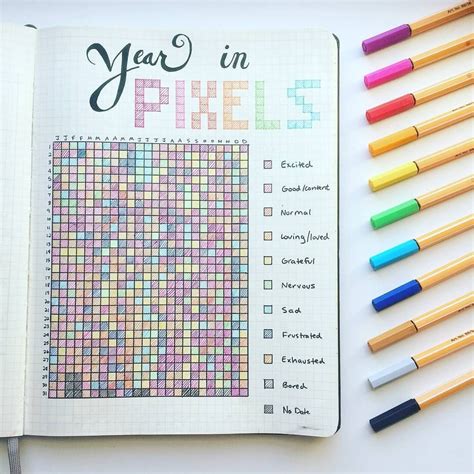 Year in
PIXELS
J J F F M M A A M M J J J J A A S S O O N N D D
1
2
3
4
5
6
7
8
9
10
11
12
13
14
15
16
17
18
19
20
21
22
23
24
25
26
27
28
29
30
31
Excited
Good/content
Normal
Loving/loved
Grateful
Nervous
Sad
Frustrated
Exhausted
Bored
No Date